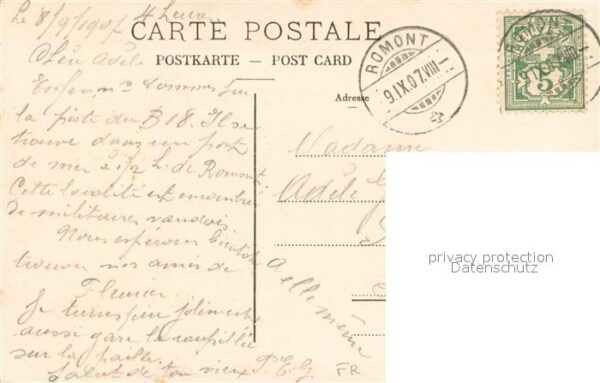 Le 8/9/1907 4 heures
CARTE POSTALE
POSTKARTE — POST CARD
Adresse
ROMONT
9.IX.07.VIII—
ROMONT
HELVETIA
5
9.IX.07.VIII—
Adèle
Enfin ns sommes sur
la piste du B 18. Il se
trouve dans un port
de mer à 1/2 h. de Romont.
Cette localité est encombrée
de militaires vaudois.
Nous espérons bientôt
trouver nos amis de
Fleurier
Je
aussi gare la roupillée
sur la paille.
Salut de ton vieux P.E.G
Madame
Adèle
FR
privacy protection
Datenschutz